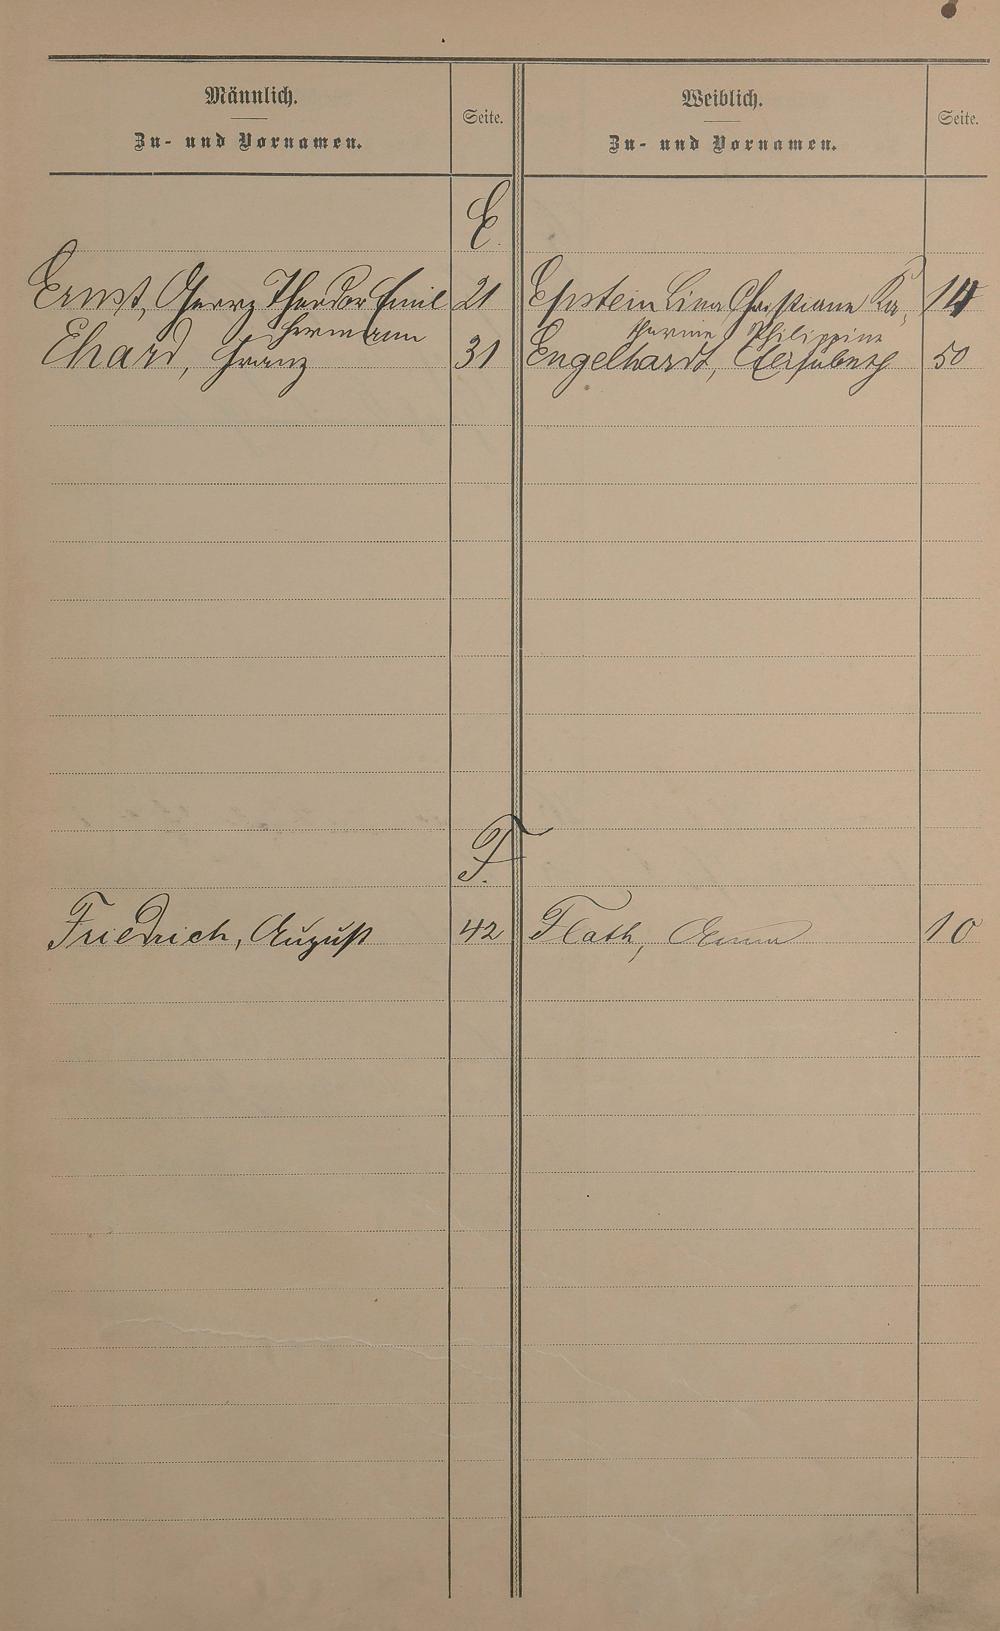 Männlich.
Zu- und Vornamen.
Seite.
Weiblich.
Zu- und Vornamen.
Seite.
E.
Ernst, Georg Theodor Emil 21
Hermann
Ehard, Franz 31
Epstein Lina Christiane Ka-
tharine Philippine
Engelhardt, 50
F.
Friedrich, August 42
Flath, Anna 10